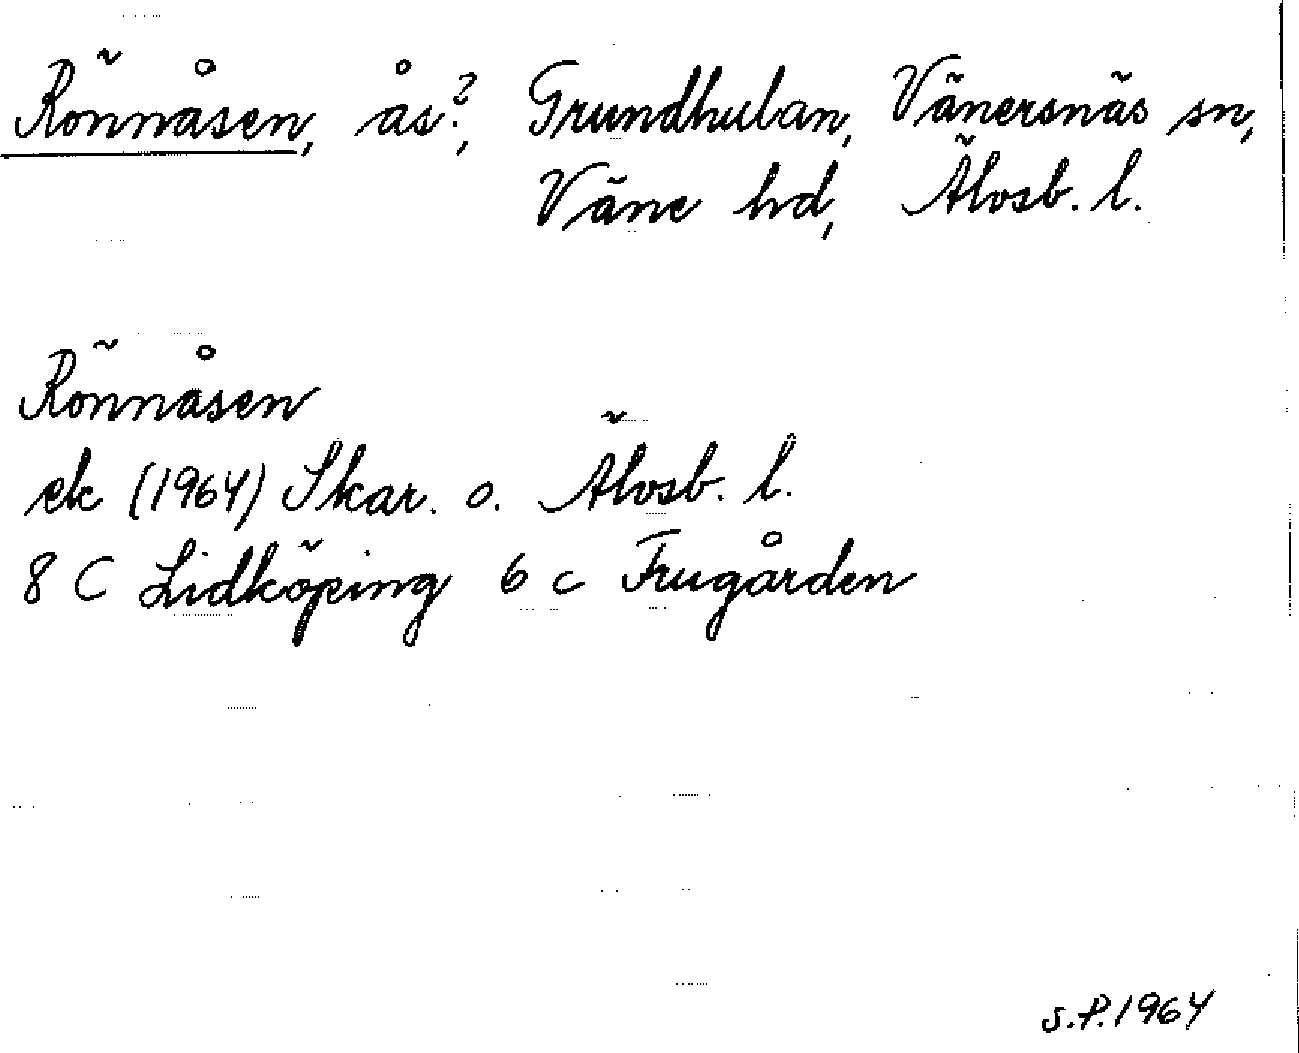 Rönnåsen, ås?, Grundhulan, Vänersnäs sn,
Väne hd, Älvsb. l.
Rönnåsen
ek (1964) Skar. o. Älvsb. l.
8 C Lidköping 6 c Frugården
S.P. 1964